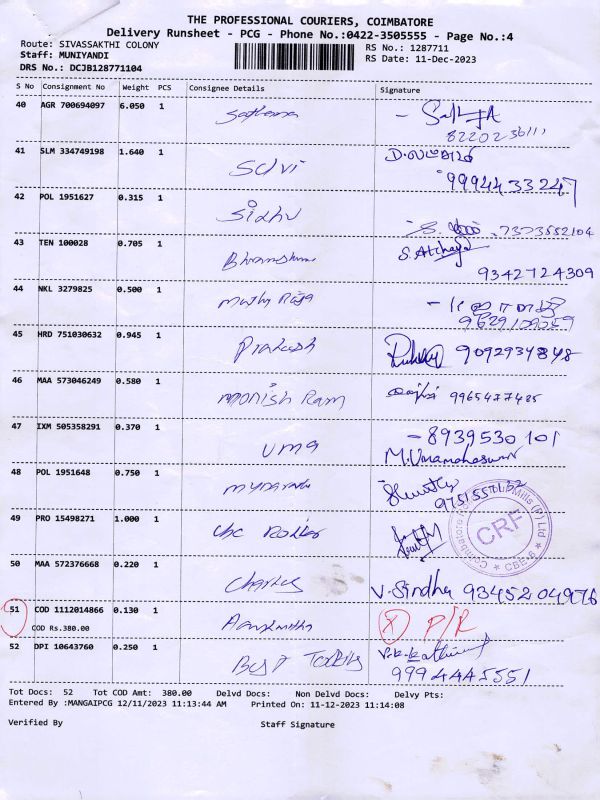 THE PROFESSIONAL COURIERS, COIMBATORE
Delivery Runsheet - PCG - Phone No.:0422-3505555 - Page No.:4
Route: SIVASSAKTHI COLONY RS No.: 1287711
Staff: MUNIYANDI RS Date: 11-Dec-2023
DRS No.: DCJB128771104
S No Consignment No Weight PCS Consignee Details Signature
40 AGR 700694097 6.050 1
8220236111
41 SLM 334749198 1.640 1 Selvi
9994433247
42 POL 1951627 0.315 1 Sidhu
7373552104
43 TEN 100028 0.705 1 S. Atchaya
9342724309
44 NKL 3279825 0.500 1
45 HRD 751030632 0.945 1 Prakash 9092934848
46 MAA 573046249 0.580 1 Monish Ram 9965477485
47 IXM 505358291 0.370 1 Uma - 8939530101
M. Umamaheswari
48 POL 1951648 0.750 1
49 PRO 15498271 1.000 1
Mills (P) Ltd
CRF
50 MAA 572376668 0.220 1 Charles V. Sindha 9345204976
51 COD 1112014866 0.130 1 P/R
COD Rs.380.00
52 DPI 10643760 0.250 1 Best
9994445551
Tot Docs: 52 Tot COD Amt: 380.00 Delvd Docs: Non Delvd Docs: Delvy Pts:
Entered By :MANGAIPCG 12/11/2023 11:13:44 AM Printed On: 11-12-2023 11:14:08
Verified By Staff Signature